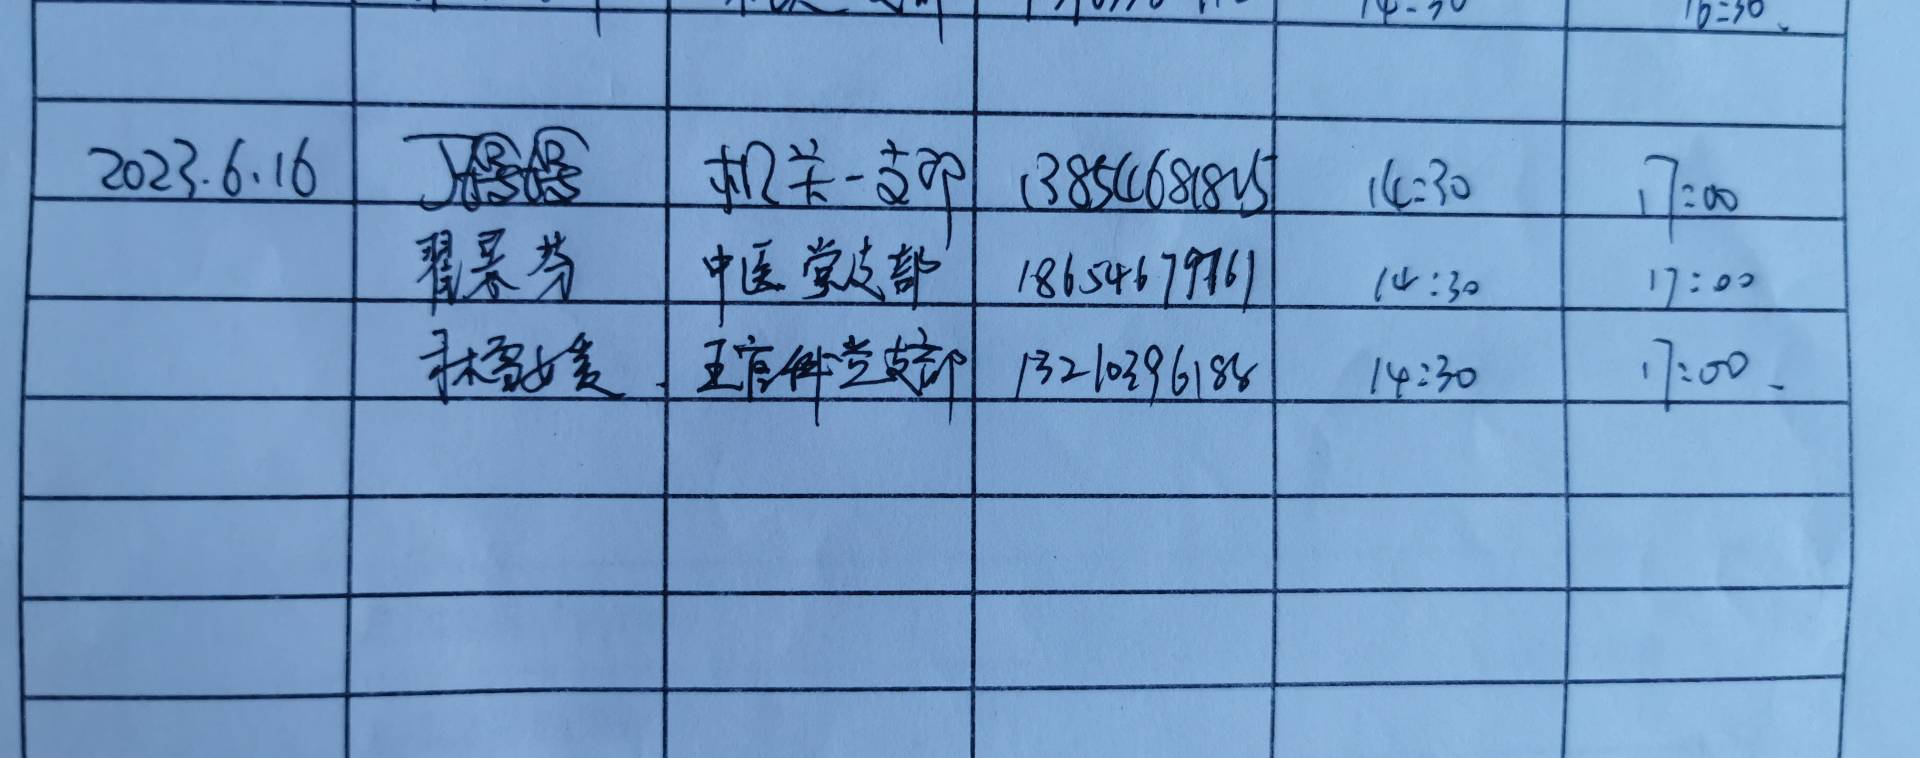 14:30 16:30
2023.6.16 机关一支部 13854681815 14:30 17:00
翟景芳 中医党支部 18654679761 14:30 17:00
林雪媛 五官科党支部 13210396188 14:30 17:00